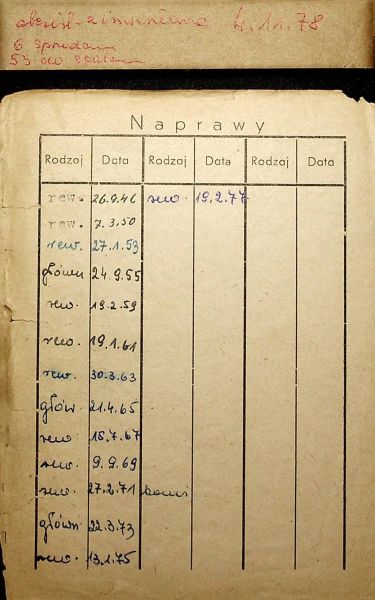 4.11.78
6
53 do
Naprawy
Rodzaj Data Rodzaj Data Rodzaj Data
rew. 26.9.46 rew. 19.2.77
rew. 7.3.50
rew. 27.1.53
główn 24.9.55
rew. 19.2.59
rew. 19.1.61
rew. 30.3.63
głów. 21.4.65
rew 15.7.67
rew. 9.9.69
rew. 27.2.71
główn 22.3.73
rew. 13.1.75